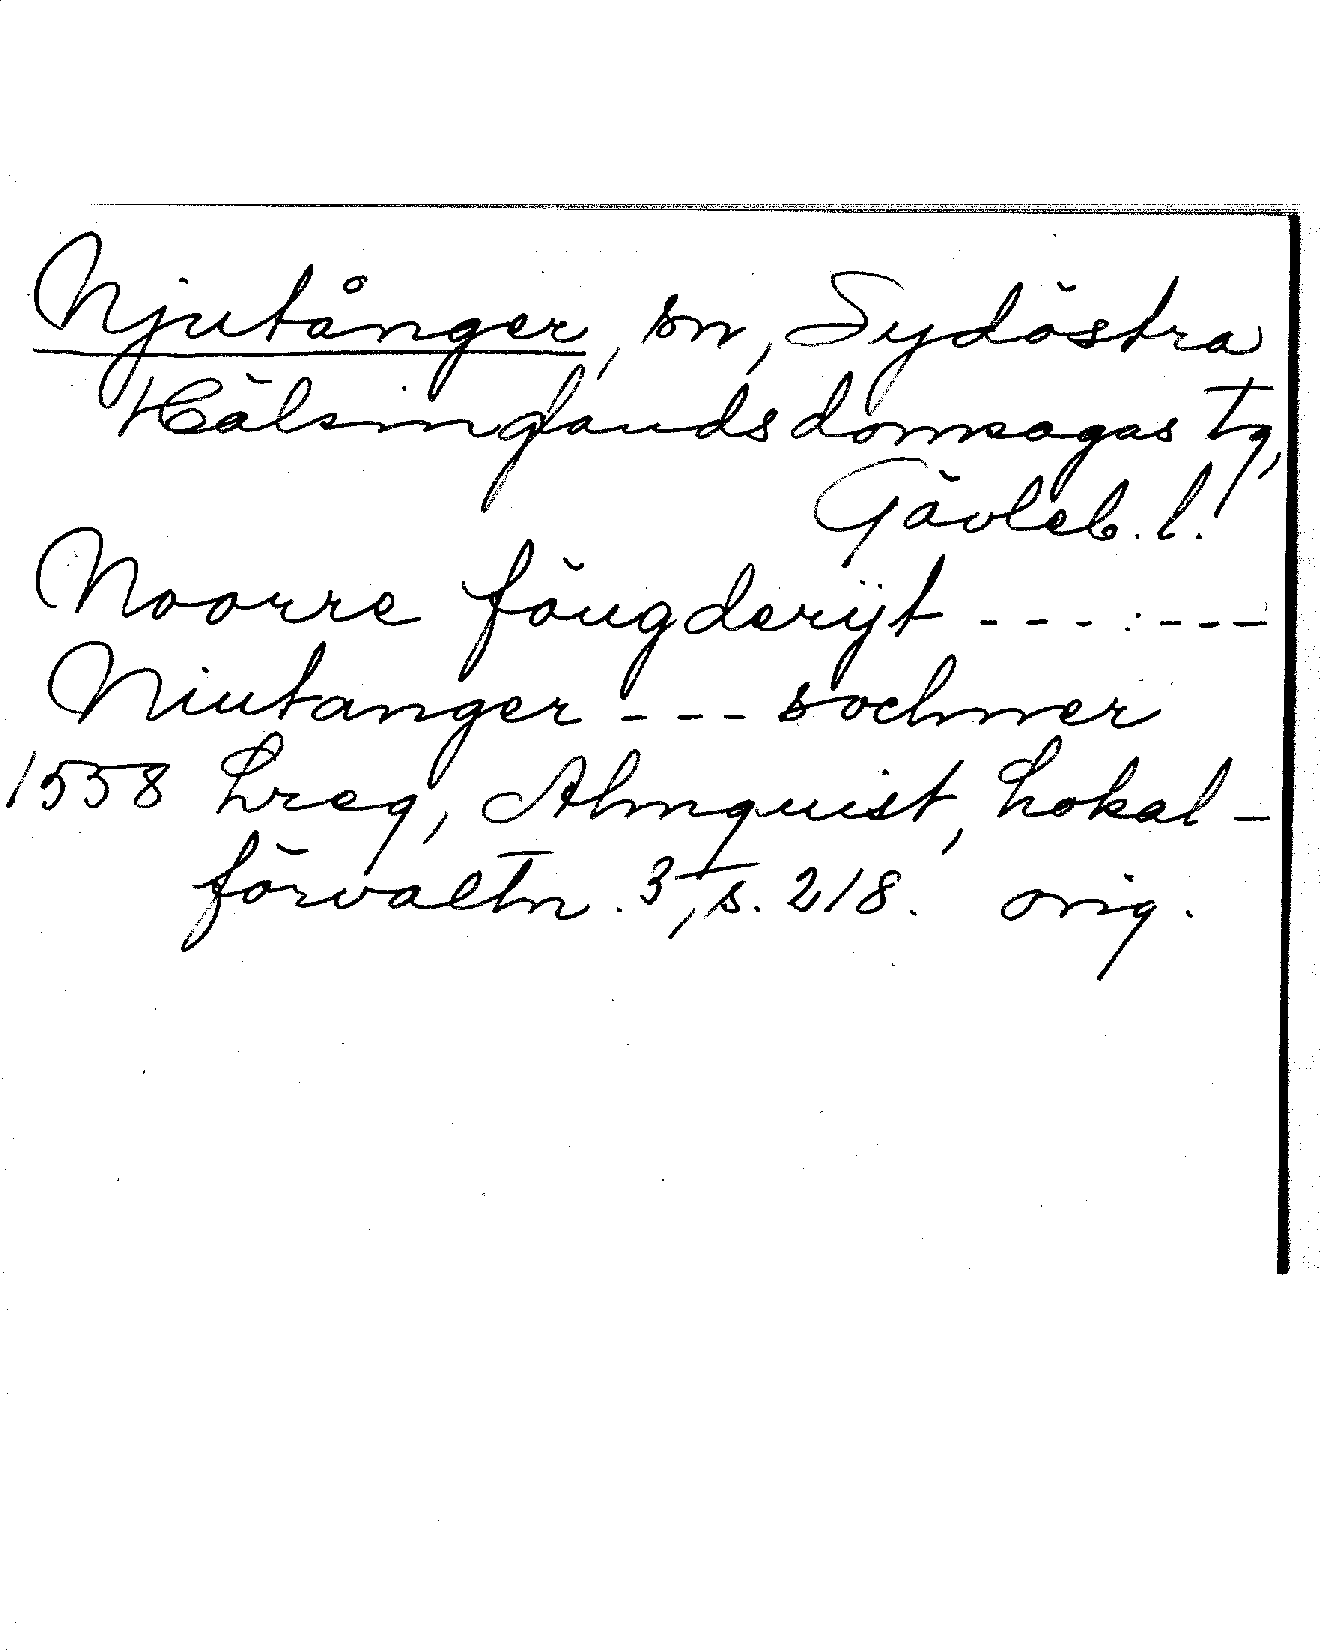 Njutånger, sn, Sydöstra
Hälsinglands domsagas tg,
Gävleb. l.
Noorre föugderijt --- : ---
Niutanger --- sochner
1558 Lreg, Almquist, Lokal-
förvaltn. 3, s. 218. orig.